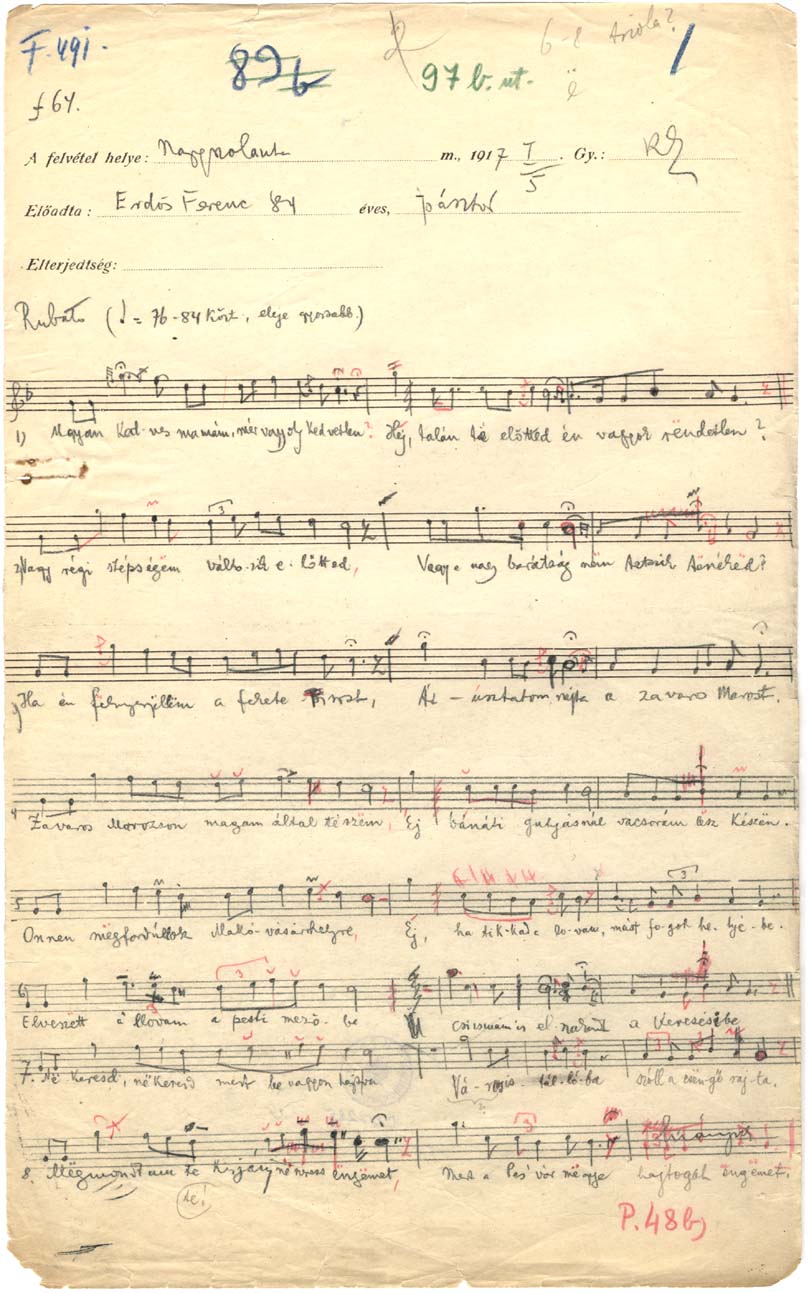 F. 491.
89b
97 b. ut.
6-l
f 64.
A felvétel helye: Nagyszalonta m., 1917 I 5. Gy.: KZ
Előadta: Erdős Ferenc 84 éves, pásztor
Elterjedtség:
Rubato (♩ = 76-84 közt, eleje gyorsabb.)
1) Ugyan kedves mamám, mér vagyoly kedvetlen? Hej, talán të előtted én vagyok rëndetlen?
2) Vagy régi szépségëm válto-zik e-lőtted, Vagy a nagy barátság nëm tetszik tenéked?
3) Ha én fëlnyergëllëm a fekete Piross, Át-úsztatom rajta a zavaros Marost.
4 Zavaros Morozson magam által tészëm, Ëj bánáti gulyásnál vacsorám lësz készën.
5 Onnen mëgfordúllok Makó-vásárhelyre, Ëj, ha tik-kad a lo-vam, mást fo-gok he-lyé-be.
6 Elveszëtt a llovam a pesti mező-be csizmám is el- a keresésibe
7. Në keresd, në keresd mert be vagyon hajtva Vá-rosis- tál-ló-ba szóll a csengő raj-ta.
8. Mëgmondtam te Kisjány në vess ëngëmet, Mert a Pes' vármëgye hajtogat ëngëmet.
(te!)
P. 48b)